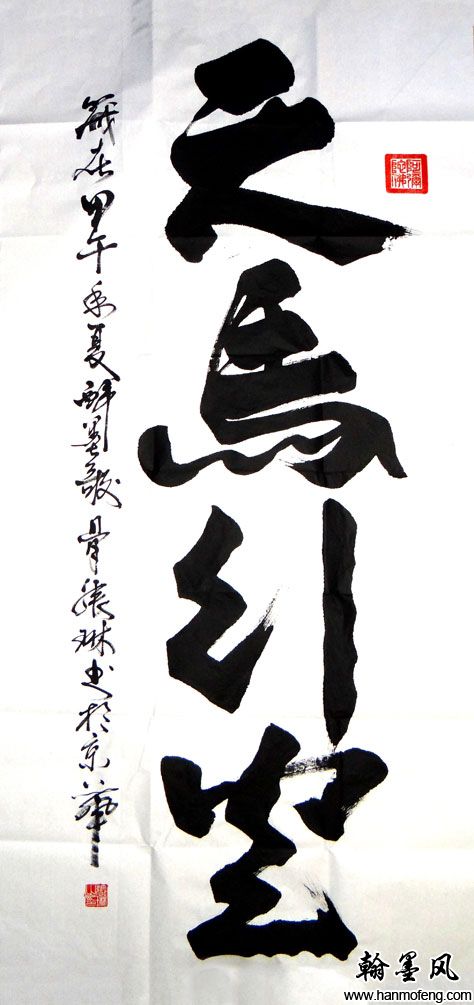 阿彌陀佛
天馬行空
歲在甲午季夏醉墨骨張琳書於京華
翰墨风
www.hanmofeng.com